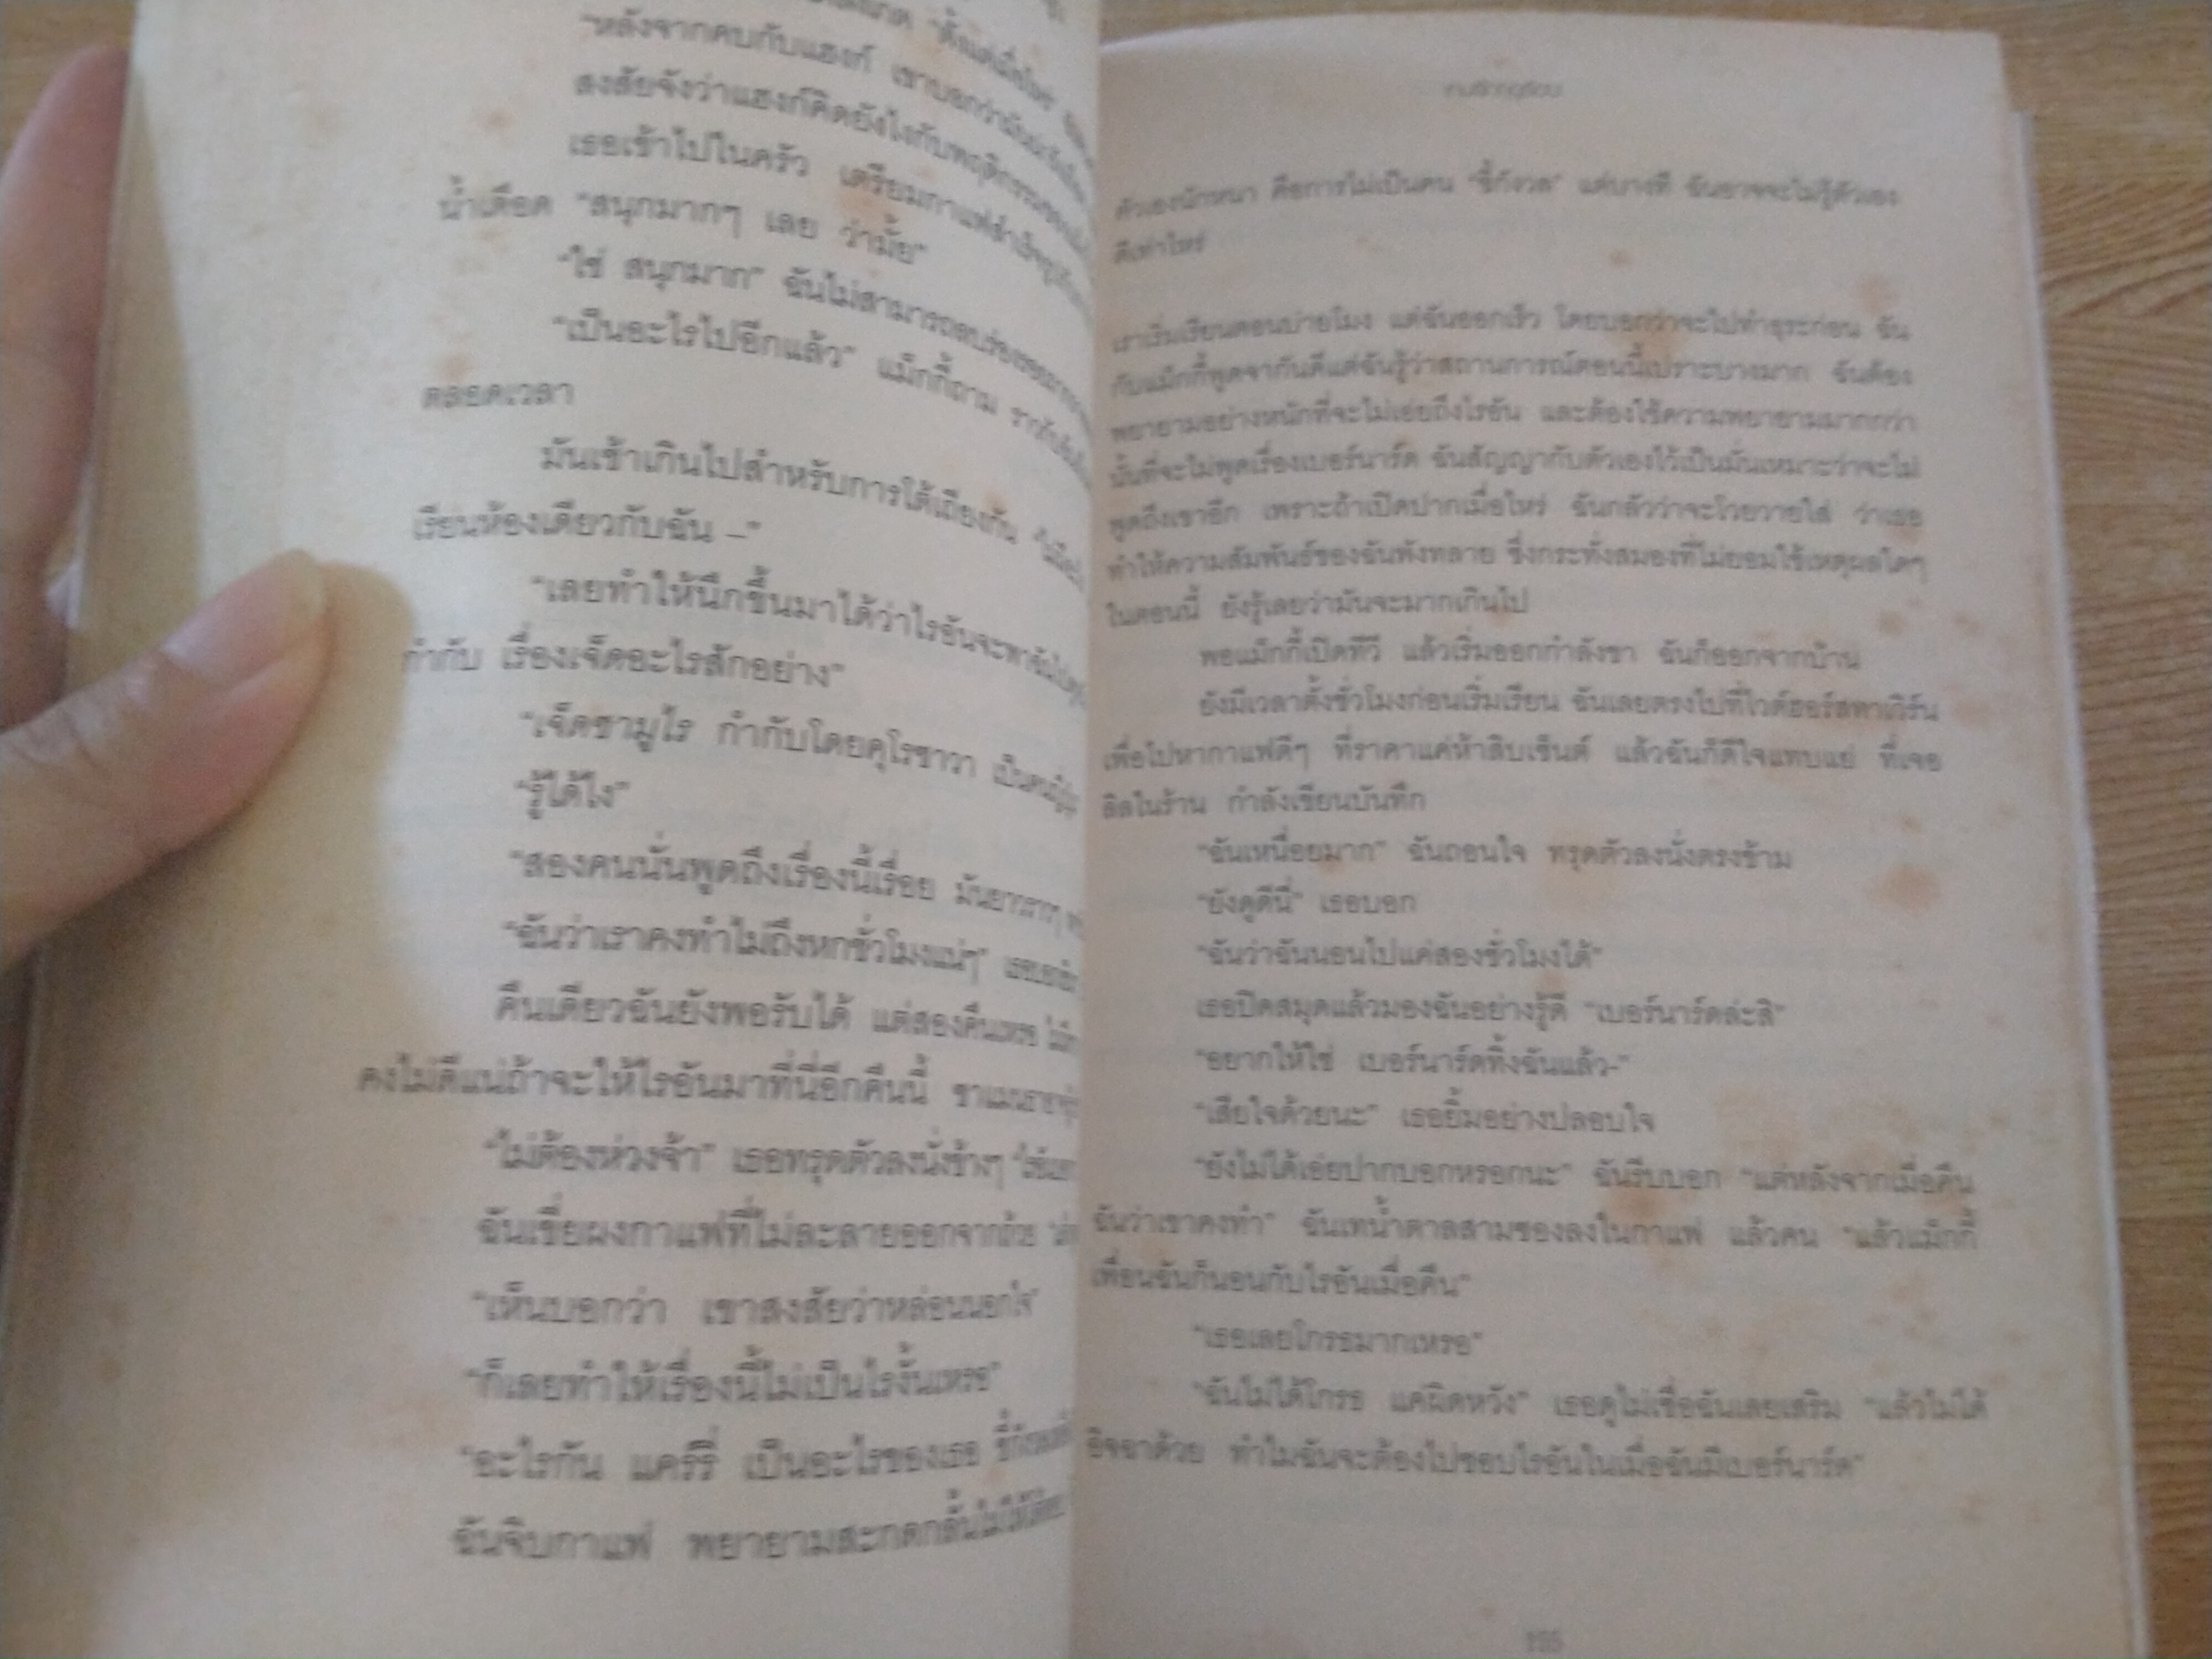 "หลังจากคบกับแฮงก์ เขาบอกว่า
สงสัยจังว่าแฮงก์คิดยังไงกับพฤติกรรม
เธอเข้าไปในครัว เตรียมกาแฟสำเร็จรูป
น้ำเดือด "สนุกมากๆ เลย ว่ามั้ย"
"ใช่ สนุกมาก" ฉันไม่สามารถลบ
"เป็นอะไรไปอีกแล้ว" แม็กกี้ถาม ราวกับ
ตลอดเวลา
มันเช้าเกินไปสำหรับการโต้เถียงกัน
เรียนห้องเดียวกับฉัน –"
"เลยทำให้นึกขึ้นมาได้ว่าไรอันจะพาฉันไป
กำกับ เรื่องเจ็ดอะไรสักอย่าง"
"เจ็ดซามูไร กำกับโดยคุโรซาวา เป็นคน
"รู้ได้ไง"
"สองคนนั่นพูดถึงเรื่องนี้เรื่อย มันยาวราวๆ
"ฉันว่าเราคงทำไม่ถึงหกชั่วโมงแน่ๆ"
คืนเดียวฉันยังพอรับได้ แต่สองคืนเหรอ
คงไม่ดีแน่ถ้าจะให้ไรอันมาที่นี่อีกคืนนี้
"ไม่ต้องห่วงจ้า" เธอทรุดตัวลงนั่งข้างๆ
ฉันเขี่ยผงกาแฟที่ไม่ละลายออกจากถ้วย
"เห็นบอกว่า เขาสงสัยว่าหล่อนนอกใจ"
"ก็เลยทำให้เรื่องนี้ไม่เป็นไรงั้นเหรอ"
"อะไรกัน แคร์รี่ เป็นอะไรของเธอ
ฉันจิบกาแฟ พยายามสะกดกลั้นไม่ให้
ตัวเองนักหนา คือการไม่เป็นคน "ขี้กังวล" แต่บางที ฉันอาจจะไม่รู้ตัวเอง
ดีเท่าไหร่
เราเริ่มเรียนตอนบ่ายโมง แต่ฉันออกเร็ว โดยบอกว่าจะไปทำธุระก่อน ฉัน
กับแม็กกี้พูดจากันดีแต่ฉันรู้ว่าสถานการณ์ตอนนี้เปราะบางมาก ฉันต้อง
พยายามอย่างหนักที่จะไม่เอ่ยถึงไรอัน และต้องใช้ความพยายามมากกว่า
นั้นที่จะไม่พูดเรื่องเบอร์นาร์ด ฉันสัญญากับตัวเองไว้เป็นมั่นเหมาะว่าจะไม่
พูดถึงเขาอีก เพราะถ้าเปิดปากเมื่อไหร่ ฉันกลัวว่าจะโวยวายใส่ ว่าเธอ
ทำให้ความสัมพันธ์ของฉันพังทลาย ซึ่งกระทั่งสมองที่ไม่ยอมใช้เหตุผลใดๆ
ในตอนนี้ ยังรู้เลยว่ามันจะมากเกินไป
พอแม็กกี้เปิดทีวี แล้วเริ่มออกกำลังขา ฉันก็ออกจากบ้าน
ยังมีเวลาตั้งชั่วโมงก่อนเริ่มเรียน ฉันเลยตรงไปที่ไวต์ฮอร์สทาเวิร์น
เพื่อไปหากาแฟดีๆ ที่ราคาแค่ห้าสิบเซ็นต์ แล้วฉันก็ดีใจแทบแย่ ที่เจอ
ลิลในร้าน กำลังเขียนบันทึก
"ฉันเหนื่อยมาก" ฉันถอนใจ ทรุดตัวลงนั่งตรงข้าม
"ยังดูดีนี่" เธอบอก
"ฉันว่าฉันนอนไปแค่สองชั่วโมงได้"
เธอปิดสมุดแล้วมองฉันอย่างรู้ดี "เบอร์นาร์ดล่ะสิ"
"อยากให้ใช่ เบอร์นาร์ดทิ้งฉันแล้ว-"
"เสียใจด้วยนะ" เธอยิ้มอย่างปลอบใจ
"ยังไม่ได้เอ่ยปากบอกหรอกนะ" ฉันรีบบอก "แต่หลังจากเมื่อคืน
ฉันว่าเขาคงทำ" ฉันเทน้ำตาลสามซองลงในกาแฟ แล้วคน "แล้วแม็กกี้
เพื่อนฉันก็นอนกับไรอันเมื่อคืน"
"เธอเลยโกรธมากเหรอ"
"ฉันไม่ได้โกรธ แค่ผิดหวัง" เธอดูไม่เชื่อฉันเลยเสริม "แล้วไม่ได้
อิจฉาด้วย ทำไมฉันจะต้องไปชอบไรอันในเมื่อฉันมีเบอร์นาร์ด"